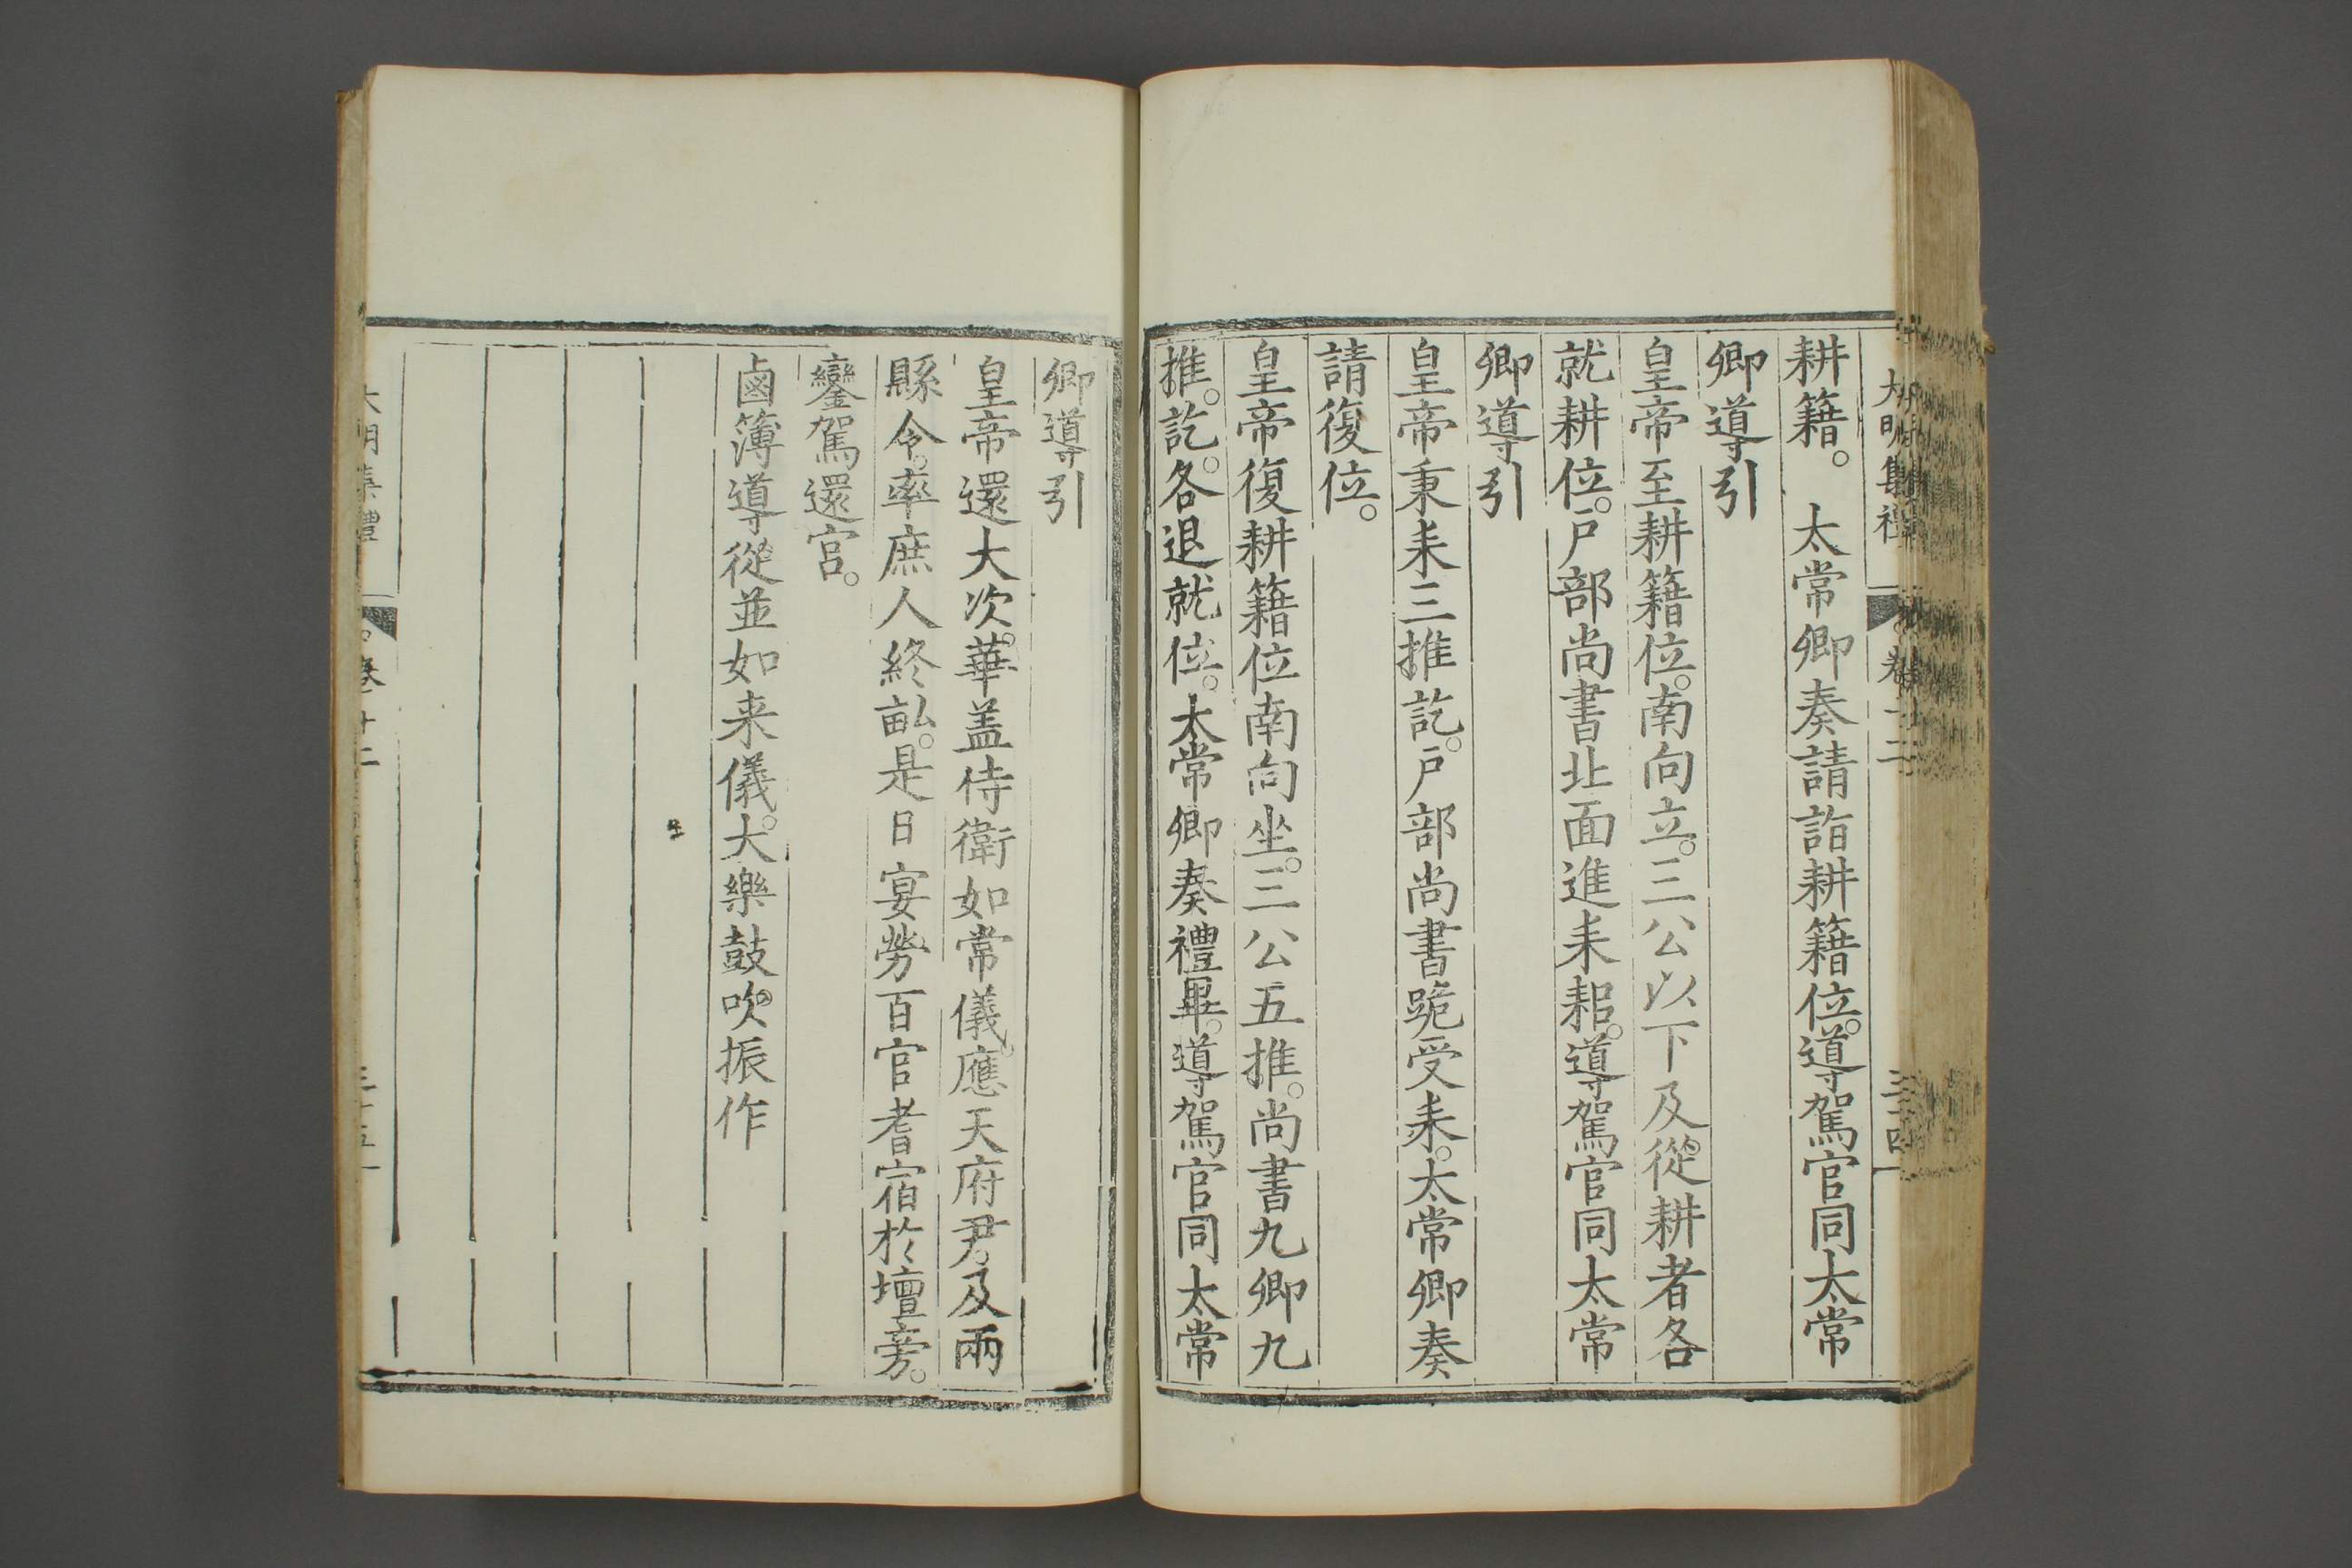 大明集禮 卷十二 三十四
耕籍。 太常卿奏請詣耕籍位。導駕官同太常
卿導引
皇帝至耕籍位。南向立。三公以下及從耕者各
就耕位。戶部尚書北面進耒耜。導駕官同太常
卿導引
皇帝秉耒三推訖。戶部尚書跪受耒。太常卿奏
請復位。
皇帝復耕籍位南向坐。三公五推。尚書九卿九
推。訖。各退就位。太常卿奏禮畢。導駕官同太常
卿導引
皇帝還大次。華盖侍衛如常儀。應天府尹。及兩
縣令。率庶人終畝。是日宴勞百官耆宿於壇旁。
鑾駕還宮。
鹵簿導從並如来儀。大樂鼓吹振作
大明集禮 卷十二 三十五